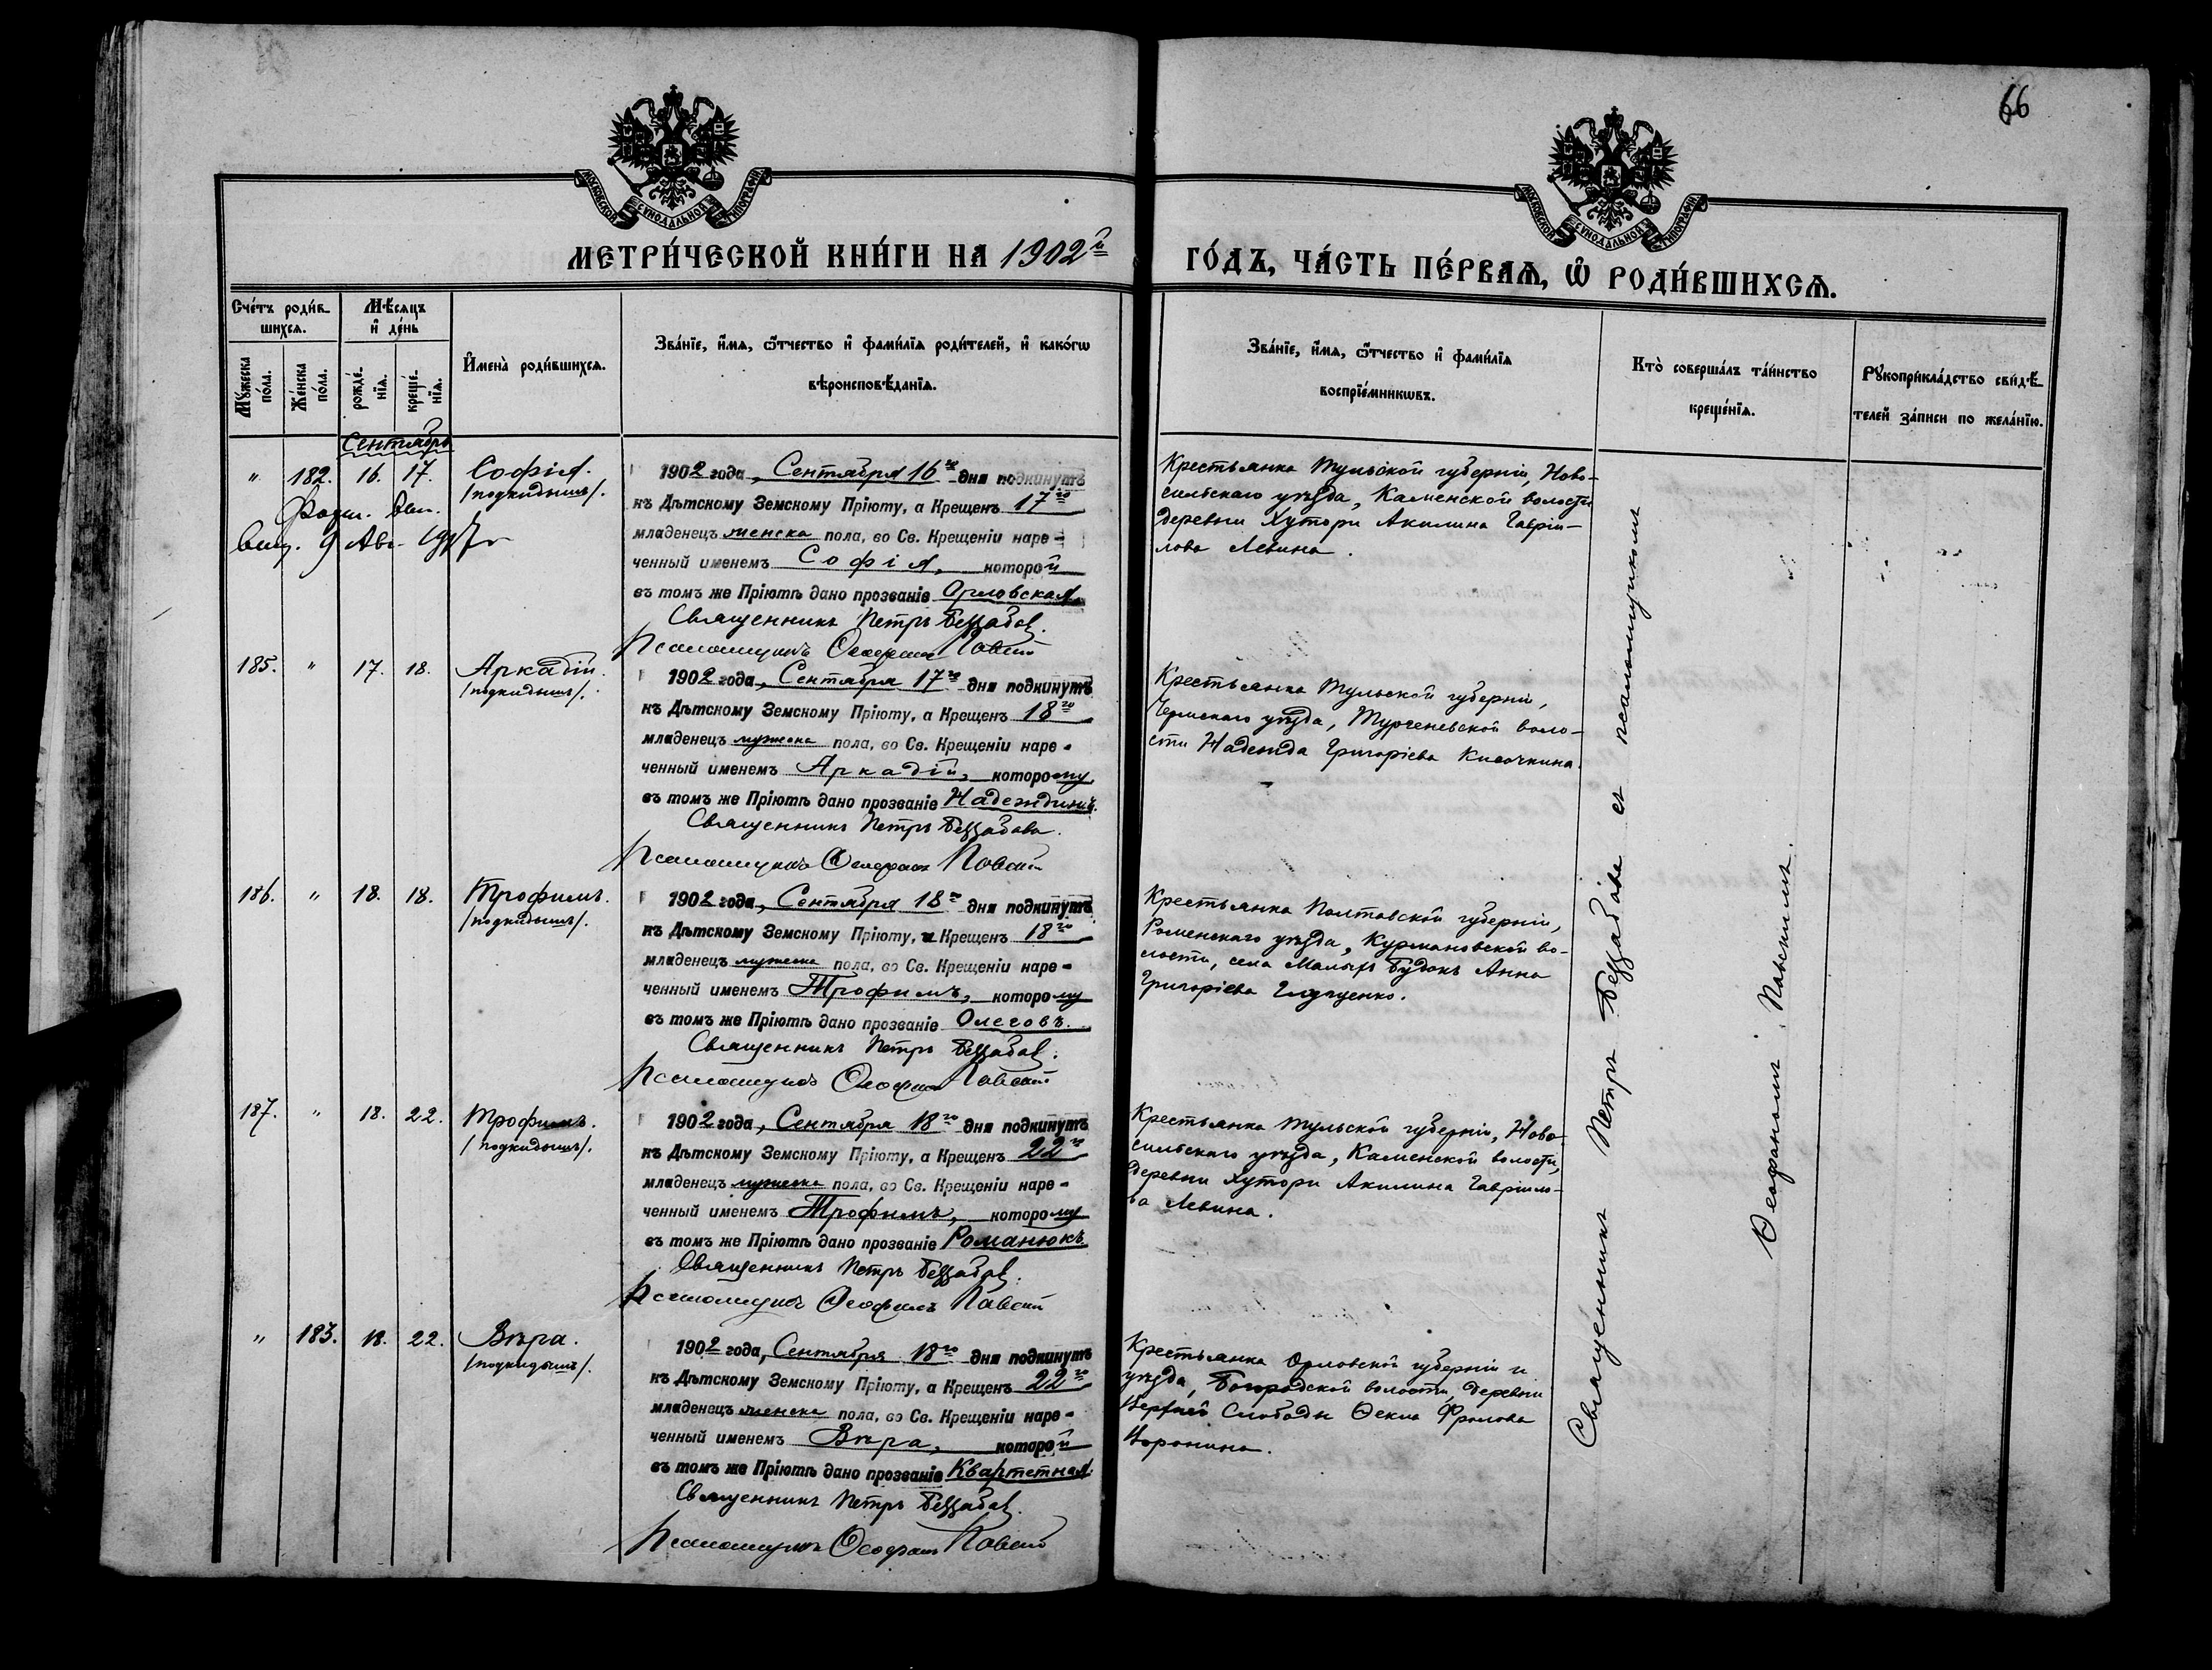 66
МОСКОВСКОЙ СѴНОДАЛЬНОЙ ТИПОГРАФІИ
МОСКОВСКОЙ СѴНОДАЛЬНОЙ ТИПОГРАФІИ
МЕТРИ́ЧЕСКОЙ КНИ́ГИ НА 1902й
ГО́ДЪ, ЧА́СТЬ ПЕ́РВАѦ, Ѡ РОДИ́ВШИХСѦ.
Сче́тъ роди́в-
шихсѧ.
Мꙋжеска по́ла.
Же́нска по́ла.
Мѣ́сѧцъ
и҆ де́нь
рожде́-
нїѧ.
креще́-
нїѧ.
И҆мена̀ роди́вшихсѧ.
Зва́нїе, и҆́мѧ, ѻ҆́тчество и҆ фами́лїѧ роди́телей, и҆ како́гѡ
вѣроисповѣ́данїѧ.
Зва́нїе, и҆́мѧ, ѻ҆́тчество и҆ фами́лїѧ
воспрїе́мникѡвъ.
Кто̀ соверша́лъ та́инство
креще́нїѧ.
Рꙋкоприкла́дство свидѣ́-
телей за́писи по жела́нїю.
Сентябрь
" 182. 16. 17. Софія.
/подкидышъ/.
9 Авг.
1902 года, Сентября 16го дня подкинутъ
къ Дѣтскому Земскому Пріюту, а Крещенъ 17го
младенецъ женска пола, во Св. Крещеніи наре-
ченный именемъ Софія, которой
въ томъ же Пріютѣ дано прозваніе Орловская.
Священникъ Петръ Беззабов.
Псаломщикъ Ѳеофанъ Павскій
Крестьянка Тульской губерніи, Ново-
сильскаго уѣзда, Каменской волости
деревни Хутори Акилина Гавріи-
лова Левина.
185. " 17. 18. Аркадій.
/подкидышъ/.
1902 года, Сентября 17го дня подкинутъ
къ Дѣтскому Земскому Пріюту, а Крещенъ 18го
младенецъ мужеска пола, во Св. Крещеніи наре-
ченный именемъ Аркадій, которому
въ томъ же Пріютѣ дано прозваніе Надеждинъ.
Священникъ Петръ Беззабова.
Псаломщикъ Ѳеофанъ Павскій
Крестьянка Тульской губерніи,
Чернскаго уѣзда, Тургеневской воло-
сти Надежда Григоріева Кисочкина.
186. " 18. 18. Трофимъ.
/подкидышъ/.
1902 года, Сентября 18го дня подкинутъ
къ Дѣтскому Земскому Пріюту, и Крещенъ 18го
младенецъ мужеска пола, во Св. Крещеніи наре-
ченный именемъ Трофимъ, которому
въ томъ же Пріютѣ дано прозваніе Олеговъ.
Священникъ Петръ Беззабов.
Псаломщикъ Ѳеофанъ Павскій
Крестьянка Полтавской губерніи,
Роменскаго уѣзда, Курмановской во-
лости, села Малыхъ Будокъ Анна
Григоріева
187. " 18. 22. Трофимъ.
/подкидышъ/.
1902 года, Сентября 18го дня подкинутъ
къ Дѣтскому Земскому Пріюту, а Крещенъ 22го
младенецъ мужеска пола, во Св. Крещеніи наре-
ченный именемъ Трофимъ, которому
въ томъ же Пріютѣ дано прозваніе Романюкъ
Священникъ Петръ Беззабов.
Псаломщикъ Ѳеофанъ Павскій
Крестьянка Тульской губерніи, Ново-
сильскаго уѣзда, Каменской волости,
деревни Хутори Акилина Гавріило-
ва Левина.
" 183. 18. 22. Вѣра.
/подкидышъ/.
1902 года, Сентября 18го дня подкинутъ
къ Дѣтскому Земскому Пріюту, а Крещенъ 22го
младенецъ женска пола, во Св. Крещеніи наре-
ченный именемъ Вѣра, которой
въ томъ же Пріютѣ дано прозваніе Квартетная.
Священникъ Петръ Беззабов.
Псаломщикъ Ѳеофанъ Павскій
Крестьянка Орловской губерніи и
уѣзда, Богородской волости, деревни
Слободы Ѳекла Фролова
Воронина.
Священникъ Петръ Беззабовъ съ псаломщикомъ
Ѳеофаномъ Павскимъ.